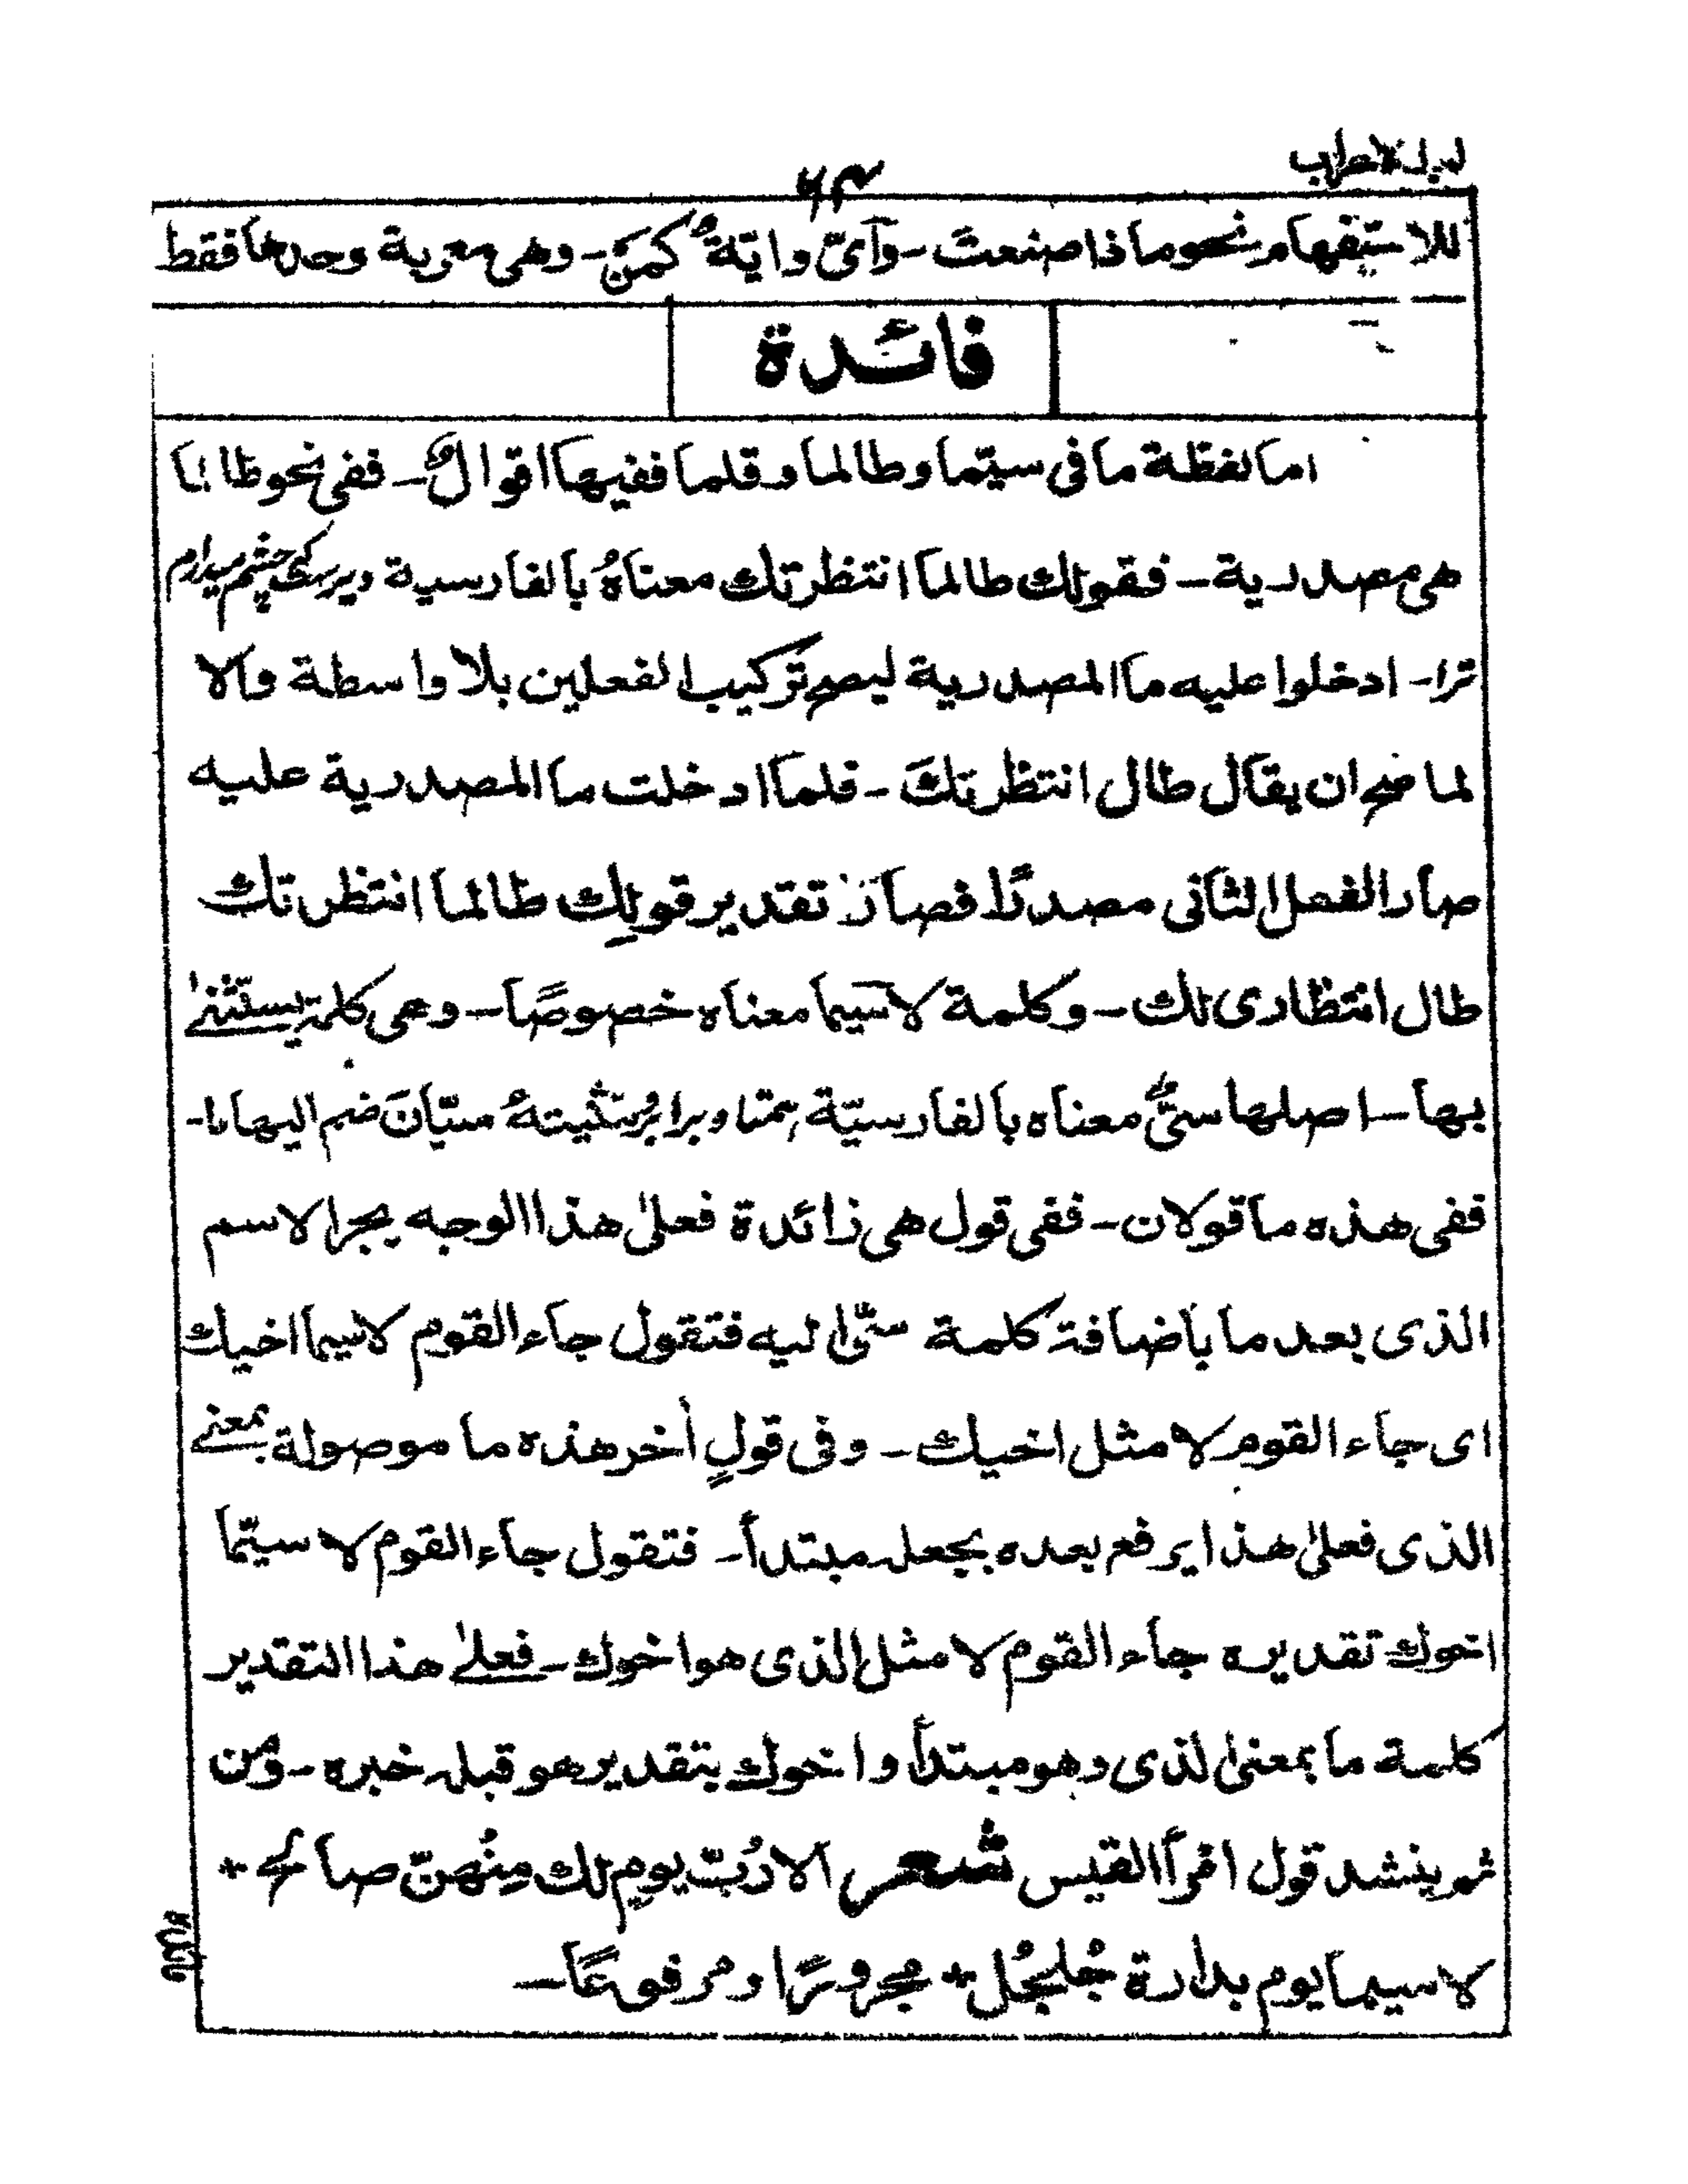 للاستفهام نحو ماذا صنعت - وآیّ وایّةٌ کمن - وهی معربة وحدها فقط
فائدة
اما لفظة ما فی سیّما وطالما وقلما ففیها اقوالٌ - ففی نحو طالما
هی مصدریة - فقولك طالما انتظرتك معناهُ بالفارسیة دیرست که چشم میدارم
ترا - ادخلوا علیه ما المصدریة لیصح ترکیب الفعلین بلا واسطة والا
لما صح ان یقال طال انتظرتكَ - فلما ادخلت ما المصدریة علیه
صار الفعل الثانی مصدرًا فصار تقدیر قولِك طالما انتظرتك
طال انتظاری لك - وکلمة لاسیما معناه خصوصًا - وهی کلمة یستثنیٰ
بها - اصلها سیٌّ معناه بالفارسیّة همتا وبرابر تثنیتهٗ سیّانَ ضم الیها ما -
ففی هذه ما قولان - ففی قول هی زائدة فعلیٰ هذا الوجه یجر الاسم
الذی بعد ما باضافة کلمة سیّ الیه فتقول جاء القوم لاسیما اخیك
ای جاء القوم لا مثل اخیك - وفی قولٍ أخر هذه ما موصولة بمعنے
الذی فعلیٰ هذا یرفع بعده بجعله مبتدأ - فتقول جاء القوم لا سیّما
اخوك تقدیره جاء القوم لا مثل الذی هو اخوك - فعلےٰ هذا التقدیر
کلمة ما بمعنیٰ لذی وهو مبتدأ واخوك بتقدیر هو قبله خبره - ومن
ثم ینشد قول امرأ القیس شعر الا رُبّ یومٍ لك مِنْهنّ صالح *
لا سیما یوم بدارة جُلجُل * مجرورًا ومرفوعًا -